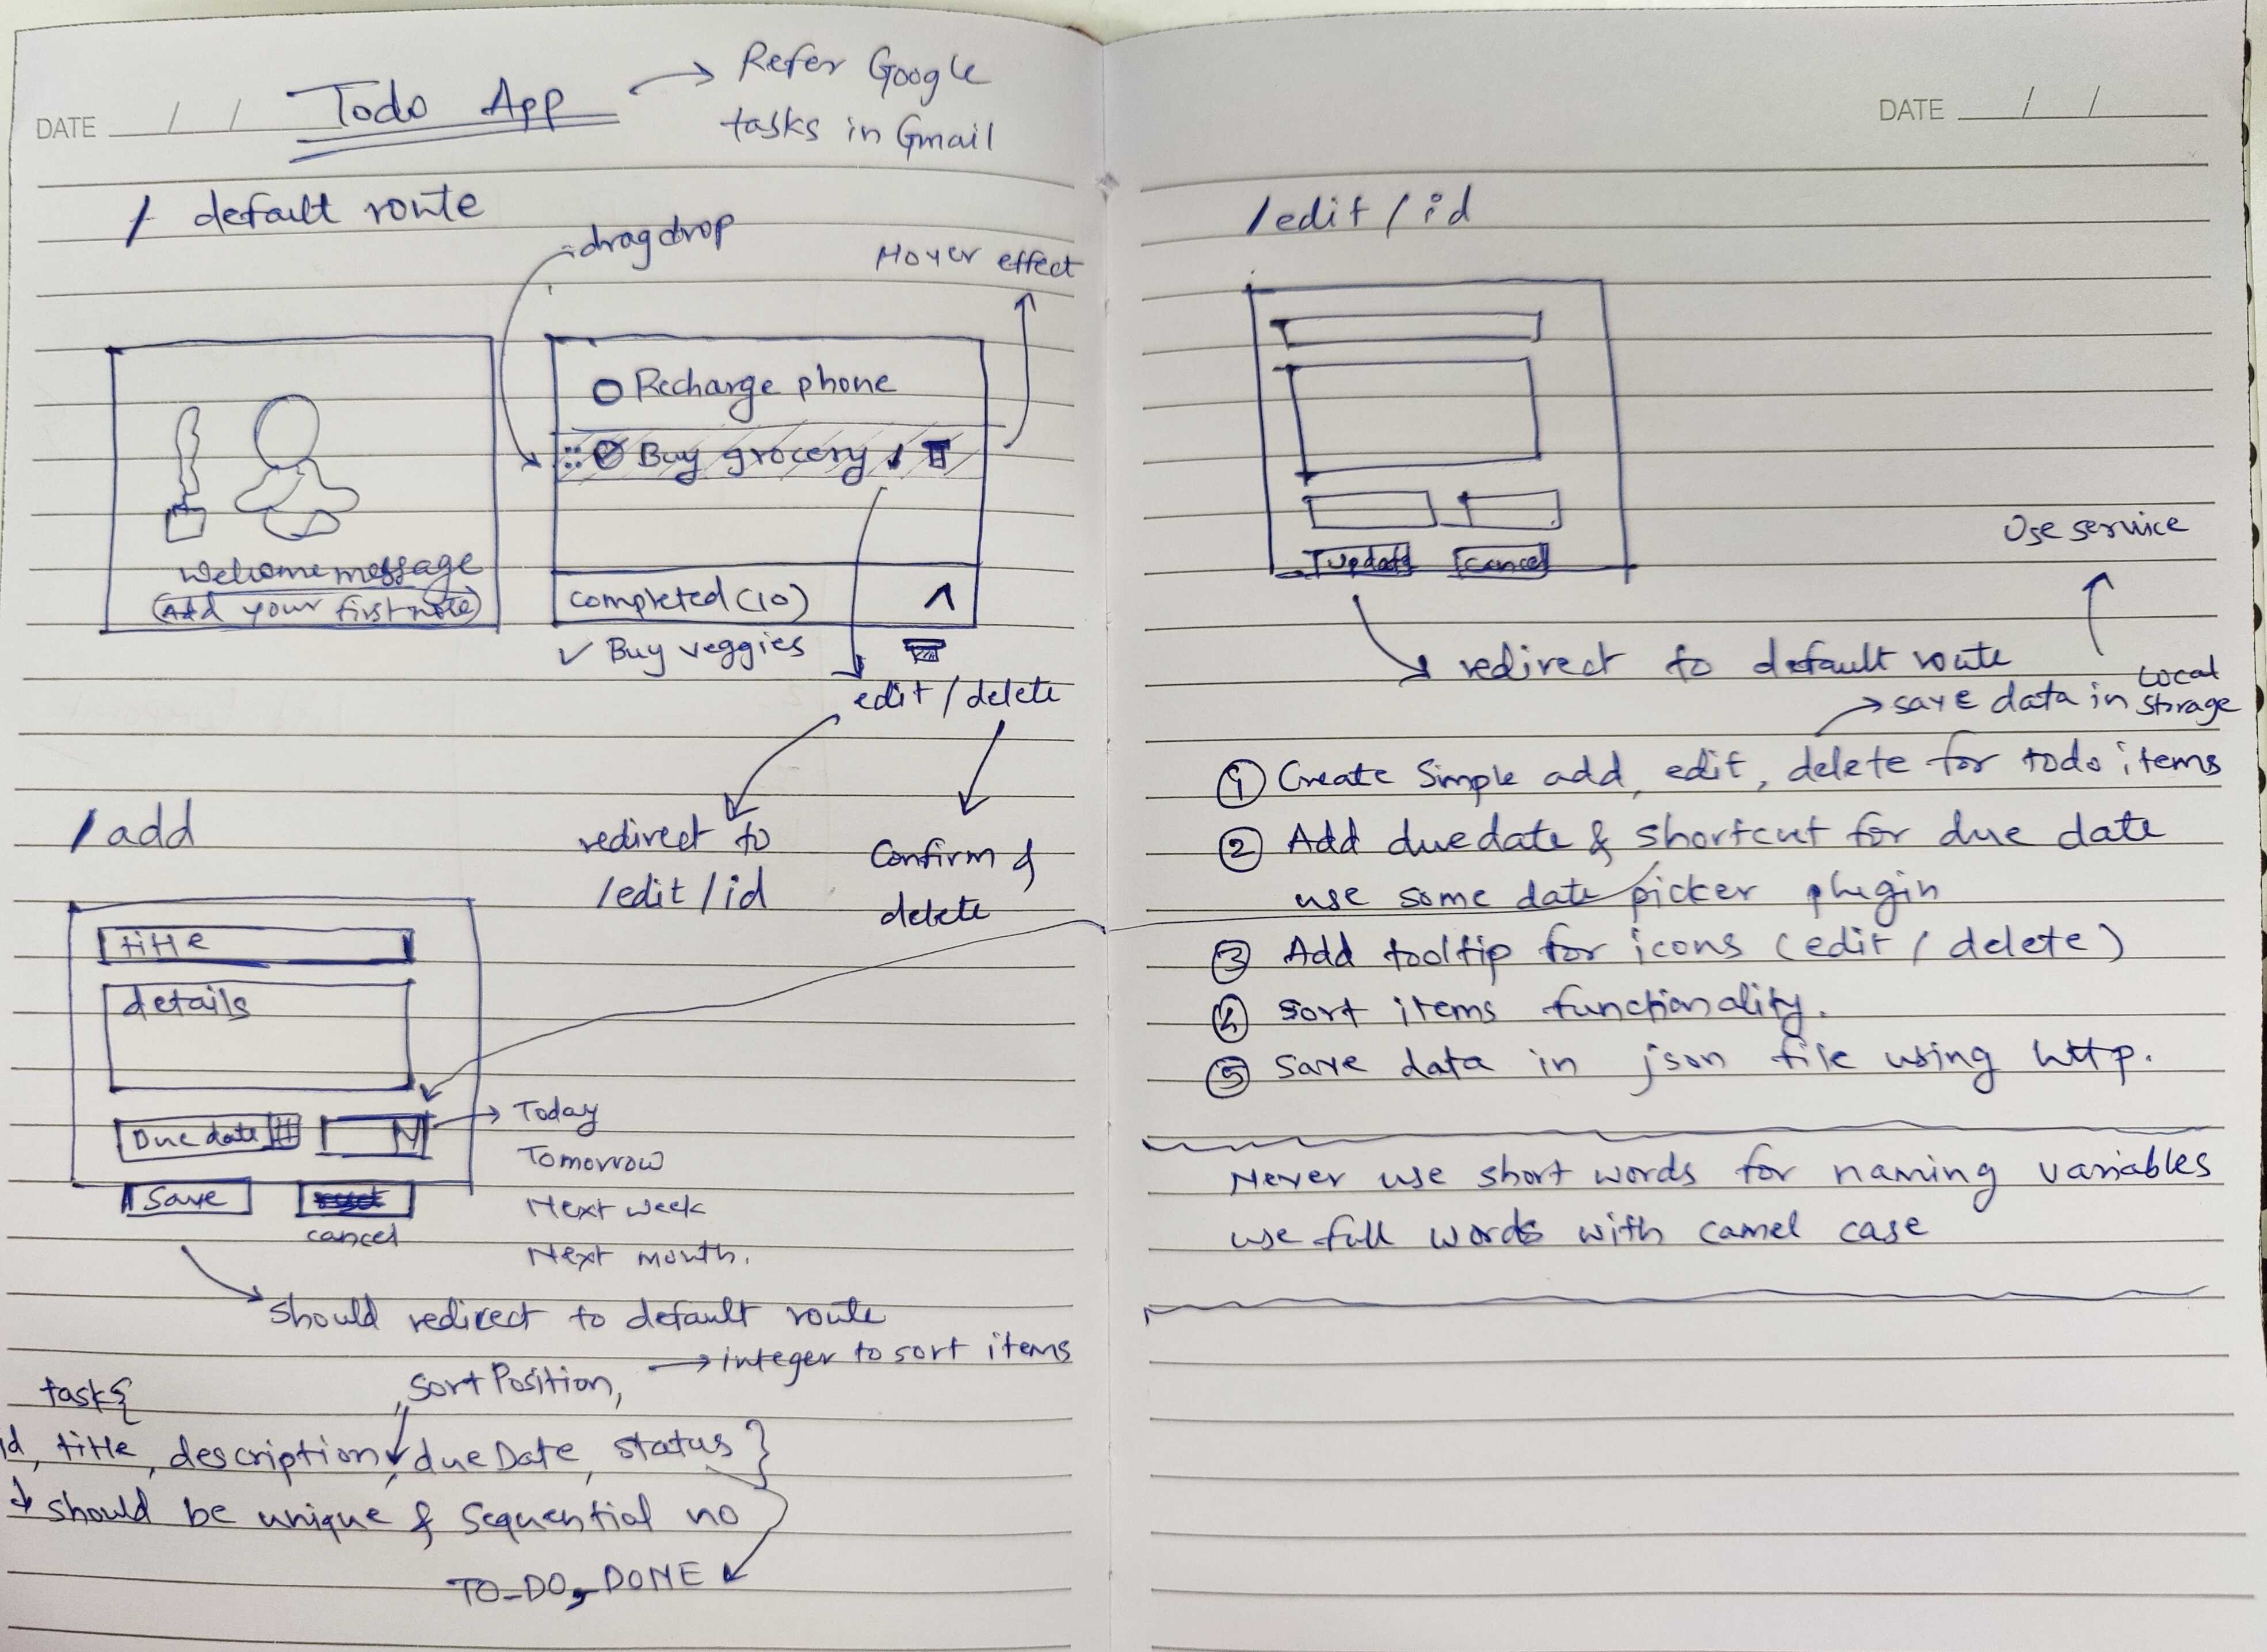 DATE / /
Todo App
Refer Google
tasks in Gmail
/ default route
dragdrop
Hover effect
Recharge phone
Buy grocery
Welcome message
Add your first note
completed (10)
✓ Buy veggies
edit / delete
redirect to
/edit / id
Confirm &
delete
/add
title
details
Due date
Save
cancel
Today
Tomorrow
Next week
Next month.
should redirect to default route
task{
sortPosition,
integer to sort items
id, title, description, dueDate, status }
should be unique & sequential no
TO_DO, DONE
DATE / /
/edit / id
Update
Cancel
redirect to default route
Use service
save data in Local
Storage
① Create Simple add, edit, delete for todo items
② Add duedate & shortcut for due date
use some date picker plugin
③ Add tooltip for icons (edit / delete)
④ sort items functionality.
⑤ save data in json file using http.
Never use short words for naming variables
use full words with camel case